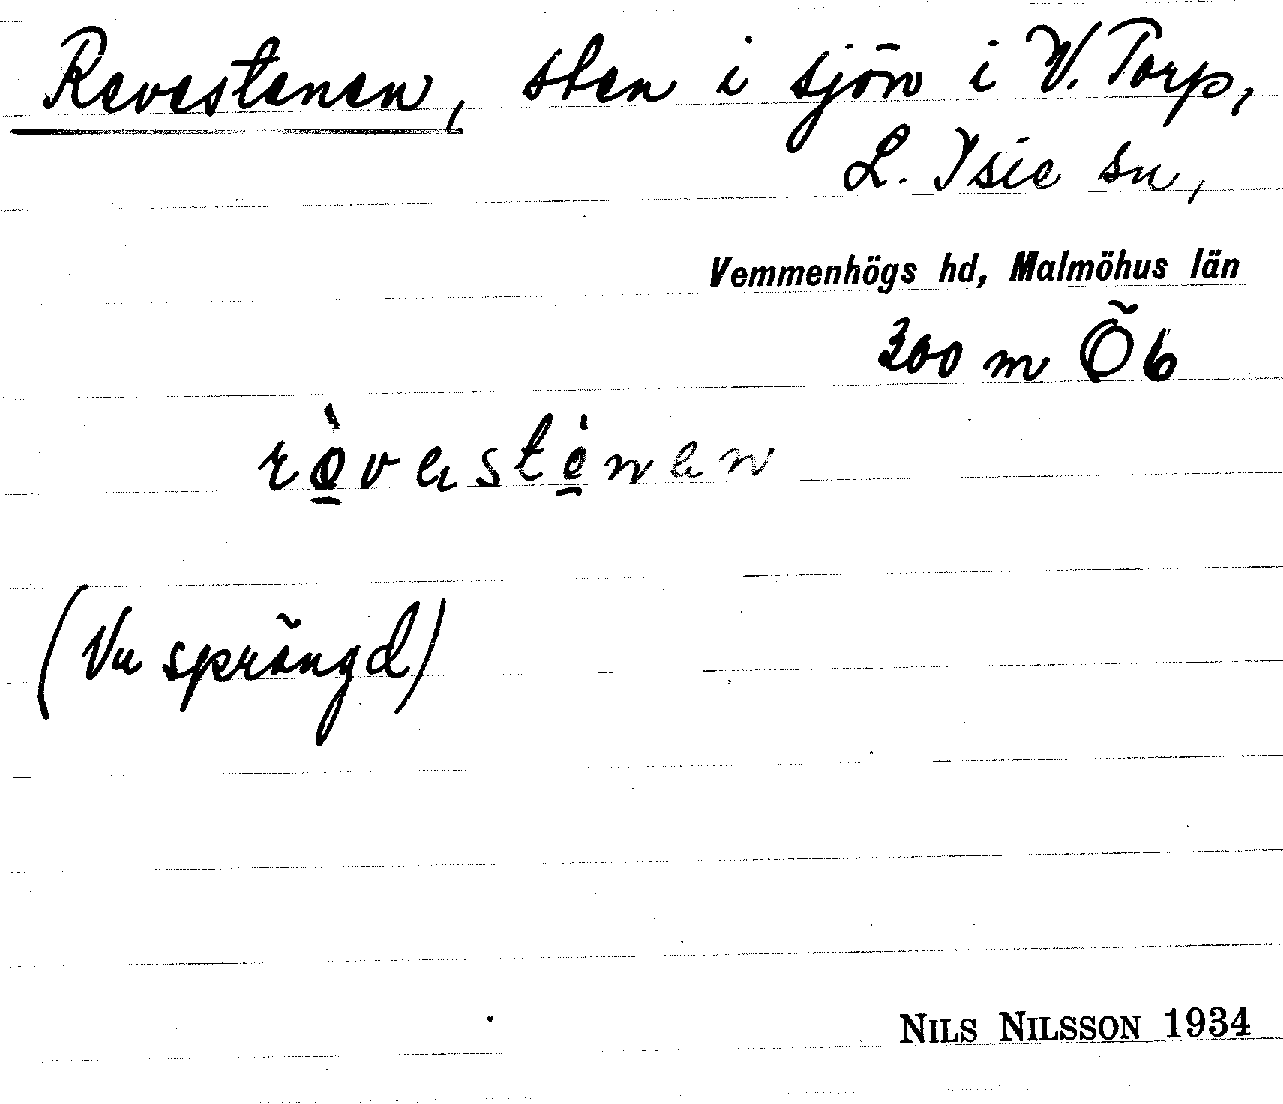 Revestenen, sten i sjön i V. Torp,
L. Isie sn,
Vemmenhögs hd, Malmöhus län
300 m Öb
(Nu sprängd)
NILS NILSSON 1934